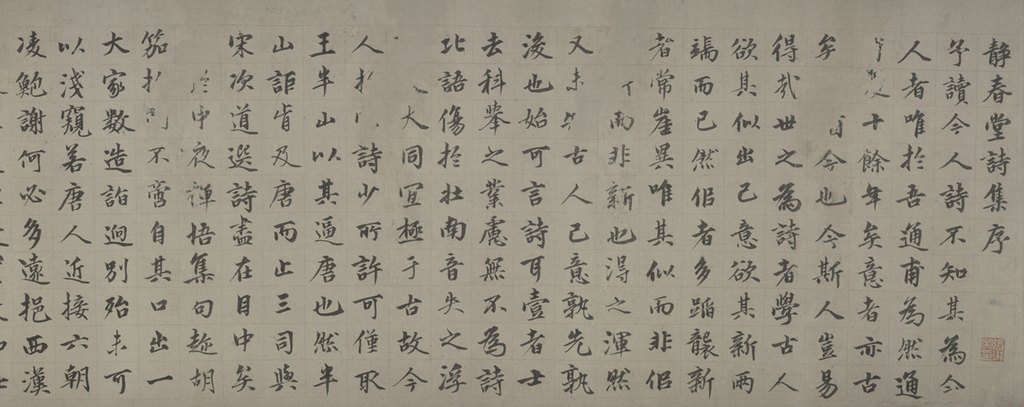 靜春堂詩集序
予讀今人詩不知其為今
人者唯於吾通甫為然通
十餘年矣意者亦古
矣今也今斯人豈易
得哉世之為詩者學古人
欲其似出己意欲其新兩
端而已然似者多蹈襲新
者常崖異唯其似而非似
而非新也得之渾然
又未古人己意孰先孰
後也始可言詩耳壹者士
去科舉之業慮無不為詩
北語傷於壯南音失之浮
大同宜極于古故今
人詩少所許可僅取
王半山以其逼唐也然半
山詎肯及唐而止三司與
宋次道選詩盡在目中矣
中夜禪悟集句趂胡
笳不啻自其口出一
大家數造詣迥別殆未可
以淺窺若唐人近接六朝
凌鮑謝何必多遠挹西漢